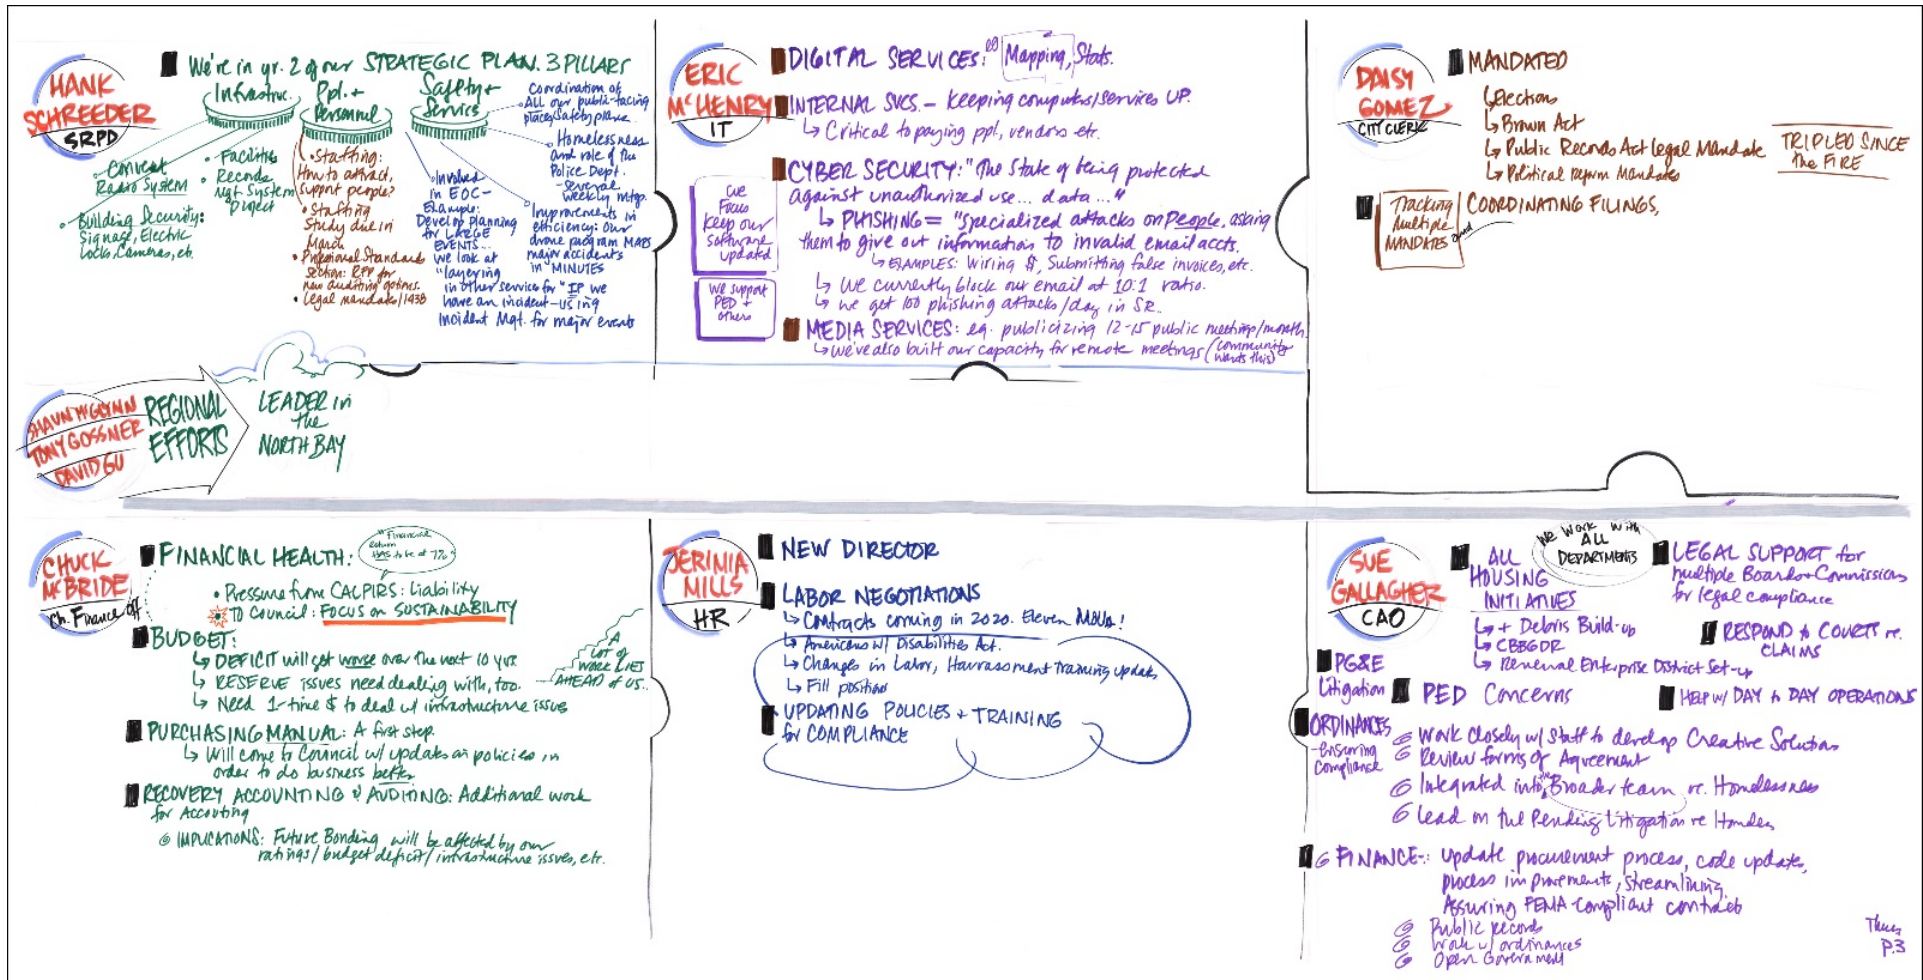 HANK
SCHREEDER
SRPD
We're in yr. 2 of our STRATEGIC PLAN. 3 PILLARS
Infrastruc.
Ppl. +
Personnel
Safety +
Service
• Convert
Radio System
• Building Security:
Signage, Electric
Locks, Cameras, etc.
• Facilities
• Records
Mgt System
Project
• Staffing:
How to attract,
support people?
• Staffing
Study due in
March
• Professional Standards
Section: RFP for
new auditing options.
• Legal mandates/1438
• Involved
in EOC-
Example:
Develop planning
for LARGE
EVENTS...
we look at
"layering
in other services for "IF we
have an incident - using
Incident Mgt. for major events
• Coordination of
ALL our public-facing
places/Safety plans
• Homelessness
and role of the
Police Dept.
- several
weekly mtgs.
• Improvements in
efficiency: Our
drone program MAPS
major accidents
in MINUTES
ERIC
McHENRY
IT
DIGITAL SERVICES: eg Mapping, Stats.
INTERNAL SVCS. - Keeping computers/services UP.
↳ Critical to paying ppl, vendors etc.
CYBER SECURITY: "The State of being protected
against unauthorized use... data..."
↳ PHISHING = "specialized attacks on People, asking
them to give out information to invalid email accts.
↳ EXAMPLES: Wiring $, Submitting false invoices, etc.
↳ We currently block our email at 10:1 ratio.
↳ we get 100 phishing attacks/day in SR.
Focus
Keep our
software
updated
We support
PED +
others
MEDIA SERVICES: eg. publicizing 12-15 public meetings/month.
↳ We've also built our capacity for remote meetings (community
wants this)
DAISY
GOMEZ
CITY CLERK
MANDATED
↳ Elections
↳ Brown Act
↳ Public Records Act Legal Mandate
↳ Political reform Mandates
TRIPLED SINCE
the FIRE
Tracking
Multiple
MANDATES
and
COORDINATING FILINGS,
SHAUN McGLYNN
TONY GOSSNER
DAVID GU
REGIONAL
EFFORTS
LEADER in
the
NORTH BAY
CHUCK
McBRIDE
Ch. Finance Off
FINANCIAL HEALTH:
"Financial
return
HAS to be at 7%"
• Pressure from CALPIRS: Liability
• TO Council: FOCUS on SUSTAINABILITY
BUDGET:
↳ DEFICIT will get worse over the next 10 yrs.
↳ RESERVE issues need dealing with, too.
↳ Need 1-time $ to deal w/ infrastructure issues
A
LOT OF
WORK LIES
AHEAD of US...
PURCHASING MANUAL: A first step.
↳ Will come to Council w/ updates on policies in
order to do business better.
RECOVERY ACCOUNTING & AUDITING: Additional work
for Accouting
IMPLICATIONS: Future Bonding will be affected by our
ratings/budget deficit/infrastructure issues, etc.
JERIMIA
MILLS
HR
NEW DIRECTOR
LABOR NEGOTIATIONS
↳ Contracts coming in 2020. Eleven MOUs!
↳ Americans w/ Disabilities Act.
↳ Changes in Labor, Harrassment Training update
↳ Fill position
UPDATING POLICIES + TRAINING
for COMPLIANCE
SUE
GALLAGHER
CAO
ALL
HOUSING
INITIATIVES
↳ + Debris Build-up
↳ CBBGDR
↳ Renewal Enterprise District Set-up
We work with
ALL
DEPARTMENTS
LEGAL SUPPORT for
multiple Boards + Commissions
for legal compliance
RESPOND to COURTS re.
CLAIMS
PG&E
Litigation
PED Concerns
HELP w/ DAY to DAY OPERATIONS
ORDINANCES
- ensuring
compliance
Work closely w/ Staff to develop Creative Solutions
Review forms of Agreement
Integrated into the Broader team re. Homelessness
Lead on the Pending Litigation re
FINANCE-: Update procurement process, code updates,
process improvements, streamlining.
Assuring FEMA-compliant contracts
Public records
Work w/ ordinances
Open Government
Thurs
P.3